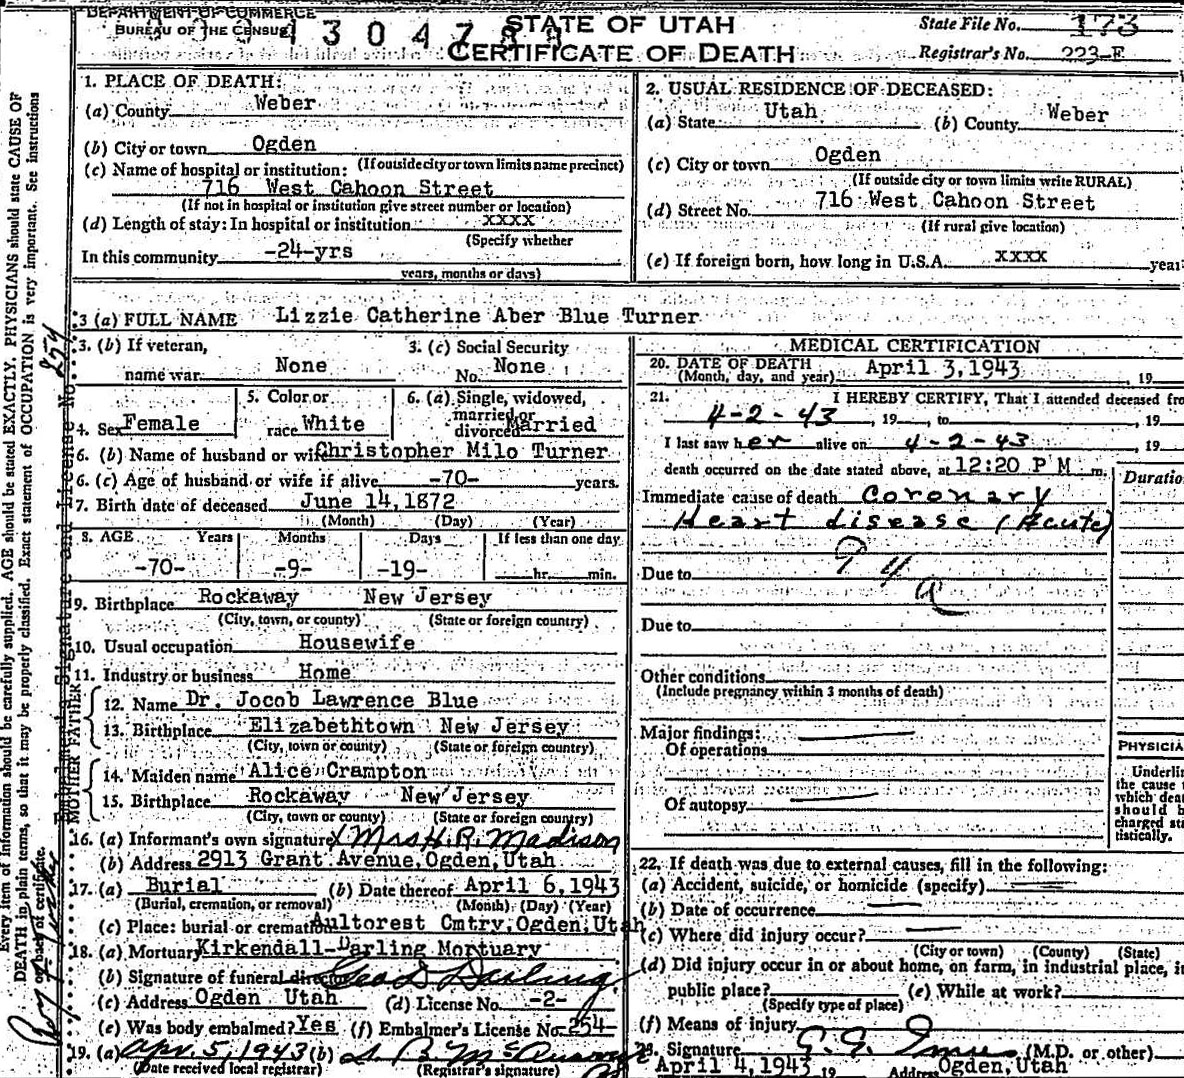 DEPARTMENT OF COMMERCE
BUREAU OF THE CENSUS
STATE OF UTAH
CERTIFICATE OF DEATH
State File No. 173
Registrar's No. 223-E
1. PLACE OF DEATH:
(a) County Weber
(b) City or town Ogden
(If outside city or town limits name precinct)
(c) Name of hospital or institution:
716 West Cahoon Street
(If not in hospital or institution give street number or location)
(d) Length of stay: In hospital or institution xxxx
(Specify whether
In this community -24-yrs
years, months or days)
2. USUAL RESIDENCE OF DECEASED:
(a) State Utah (b) County Weber
(c) City or town Ogden
(If outside city or town limits write RURAL)
(d) Street No. 716 West Cahoon Street
(If rural give location)
(e) If foreign born, how long in U.S.A. xxxx year
3 (a) FULL NAME Lizzie Catherine Aber Blue Turner
3. (b) If veteran, name war None
3. (c) Social Security No. None
4. Sex Female
5. Color or race White
6. (a) Single, widowed, married or divorced Married
6. (b) Name of husband or wife Christopher Milo Turner
6. (c) Age of husband or wife if alive -70- years.
7. Birth date of deceased June 14, 1872
(Month) (Day) (Year)
8. AGE Years Months Days If less than one day
-70- -9- -19- hr. min.
9. Birthplace Rockaway New Jersey
(City, town, or county) (State or foreign country)
10. Usual occupation Housewife
11. Industry or business Home
FATHER
12. Name Dr. Jocob Lawrence Blue
13. Birthplace Elizabethtown New Jersey
(City, town or county) (State or foreign country)
MOTHER
14. Maiden name Alice Crampton
15. Birthplace Rockaway New Jersey
(City, town or county) (State or foreign country)
16. (a) Informant's own signature X Mrs H. R. Madison
(b) Address 2913 Grant Avenue, Ogden, Utah
17. (a) Burial (b) Date thereof April 6, 1943
(Burial, cremation, or removal) (Month) (Day) (Year)
(c) Place: burial or cremation Aultorest Cmtry, Ogden, Utah
18. (a) Mortuary Kirkendall-Darling Mortuary
(b) Signature of funeral director Geo D Darling
(c) Address Ogden Utah (d) License No. -2-
(e) Was body embalmed? Yes (f) Embalmer's License No. -254-
19. (a) Apr. 5, 1943 (b)
(Date received local registrar) (Registrar's signature)
MEDICAL CERTIFICATION
20. DATE OF DEATH April 3, 1943
(Month, day, and year) , 19
21. I HEREBY CERTIFY, That I attended deceased fro
4-2-43, 19 , to , 19
I last saw h er alive on 4-2-43 19
death occurred on the date stated above, at 12:20 P M m.
Duratio
Immediate cause of death Coronary
Heart disease (Acute)
Due to
Due to
Other conditions
(Include pregnancy within 3 months of death)
Major findings:
Of operations
Of autopsy
PHYSICIA
Underlin
the cause
which dea
should b
charged sta
tistically.
22. If death was due to external causes, fill in the following:
(a) Accident, suicide, or homicide (specify)
(b) Date of occurrence
(c) Where did injury occur?
(City or town) (County) (State)
(d) Did injury occur in or about home, on farm, in industrial place, i
public place? (e) While at work?
(Specify type of place)
(f) Means of injury
23. Signature (M.D. or other)
April 4, 1943 19 Address Ogden, Utah
Every item of information should be carefully supplied. AGE should be stated EXACTLY. PHYSICIANS should state CAUSE OF
DEATH in plain terms, so that it may be properly classified. Exact statement of OCCUPATION is very important. See instructions
on back of certificate.
254